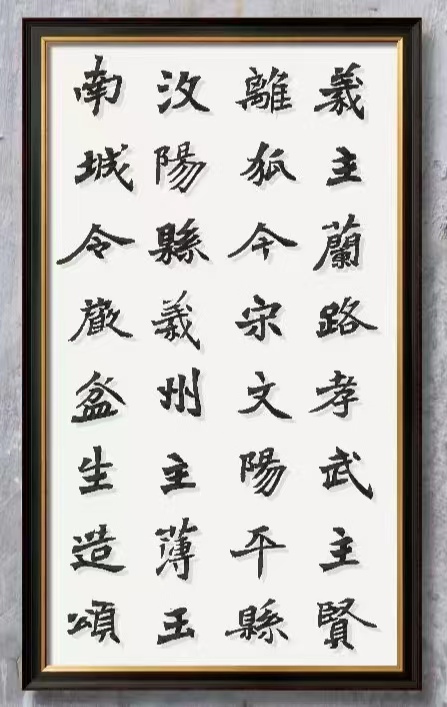 義主蘭路孝武主賢
離狐令宋文陽平縣
汝陽縣義州主薄王
南城令嚴盆生造頌